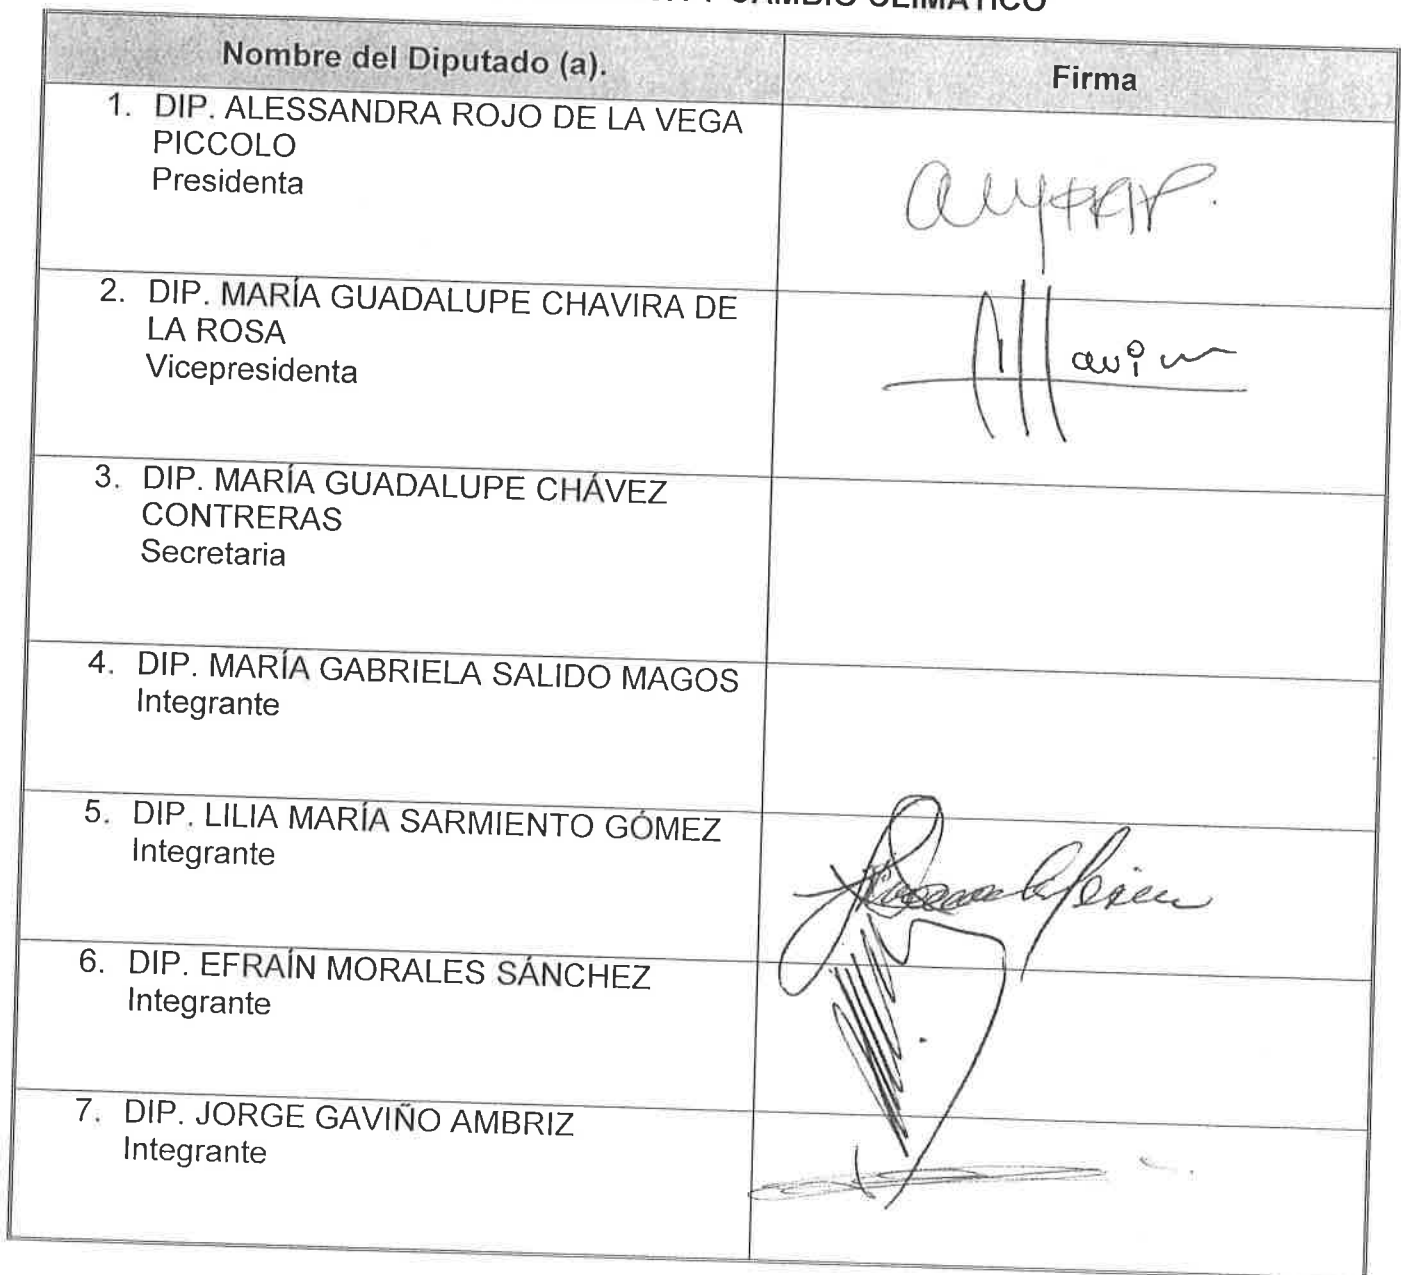 CAMBIO CLIMÁTICO
Nombre del Diputado (a).
Firma
1. DIP. ALESSANDRA ROJO DE LA VEGA
PICCOLO
Presidenta
2. DIP. MARÍA GUADALUPE CHAVIRA DE
LA ROSA
Vicepresidenta
3. DIP. MARÍA GUADALUPE CHÁVEZ
CONTRERAS
Secretaria
4. DIP. MARÍA GABRIELA SALIDO MAGOS
Integrante
5. DIP. LILIA MARÍA SARMIENTO GÓMEZ
Integrante
6. DIP. EFRAÍN MORALES SÁNCHEZ
Integrante
7. DIP. JORGE GAVIÑO AMBRIZ
Integrante